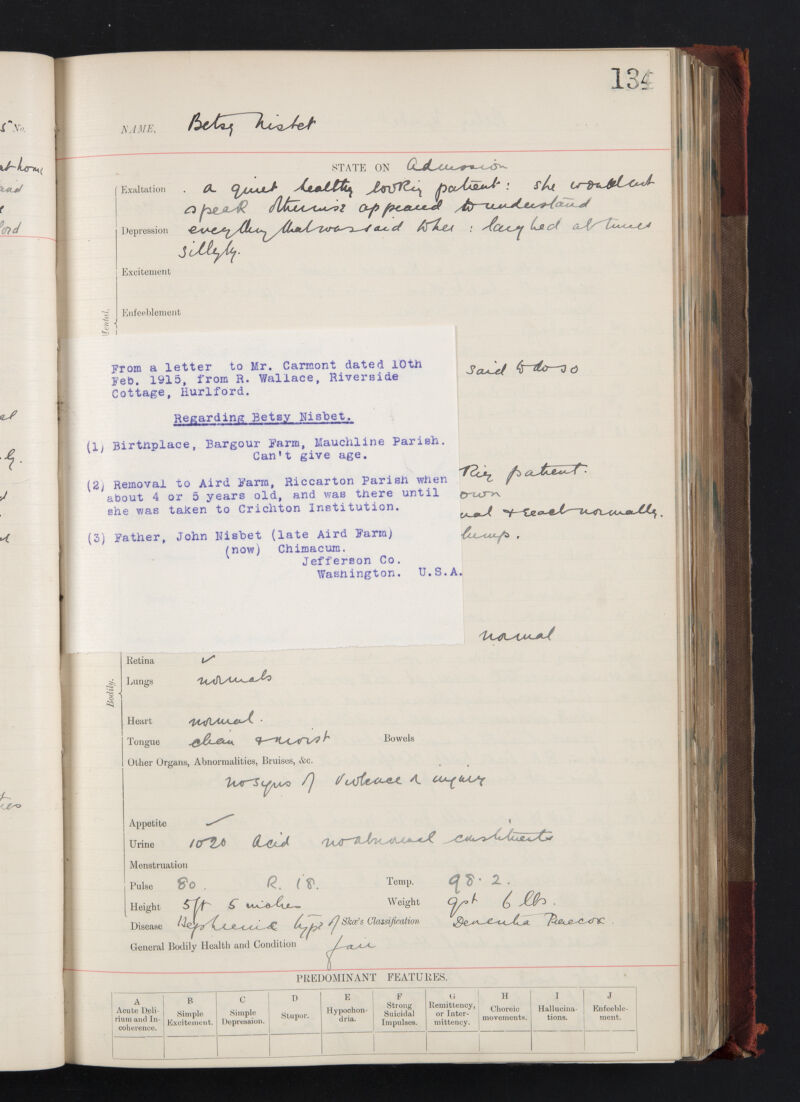 134
NAME, Betsy Nisbet
STATE ON Admission
Exaltation . a quiet healthy looking patient : she would not
speak otherwise appeared to understand
Depression everything that was said to her : laughed at times
sillyly.
Excitement
Enfeeblement
Mental.
From a letter to Mr. Carmont dated 10th
Feb. 1915, from R. Wallace, Riverside
Cottage, Hurlford.
Regarding Betsy Nisbet.
(1) Birthplace, Bargour Farm, Mauchline Parish.
Can't give age.
(2) Removal to Aird Farm, Riccarton Parish when
about 4 or 5 years old, and was there until
she was taken to Crichton Institution.
(3) Father, John Nisbet (late Aird Farm)
(now) Chimacum.
Jefferson Co.
Washington. U.S.A.
said to do so
king patient.
own
ual & react normally.
lump.
normal
Bodily.
Retina ✓
Lungs normals
Heart normal.
Tongue clean & moist Bowels
Other Organs, Abnormalities, Bruises, &c.
no signs of violence or injury
Appetite ✓
Urine 1020 acid no abnormal constituents
Menstruation
Pulse 80. R. 18. Temp. 98.2.
Height 5ft 5 inches Weight 9st 6 lbs.
Disease Hebphrenic type of Skae's Classification Dementia Praecox.
General Bodily Health and Condition fair
PREDOMINANT FEATURES.
A B C D E F G H I J
Acute Delirium and Incoherence. Simple Excitement. Simple Depression. Stupor. Hypochondria. Strong Suicidal Impulses. Remittency, or Intermittency. Choreic movements. Hallucinations. Enfeeblement.